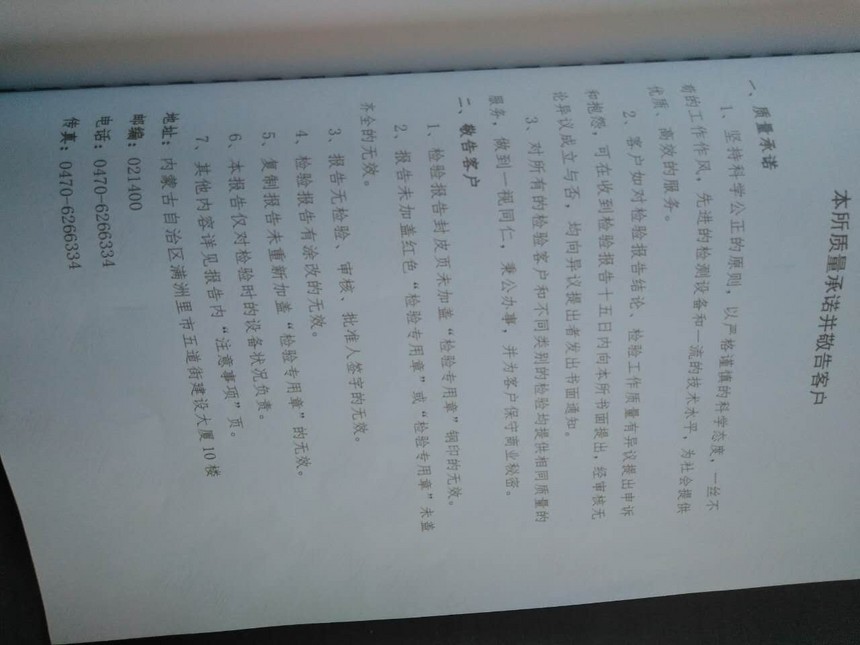 本所质量承诺并敬告客户
一、质量承诺
1、坚持科学公正的原则，以严格谨慎的科学态度，一丝不
苟的工作作风，先进的检测设备和一流的技术水平，为社会提供
优质、高效的服务。
2、客户如对检验报告结论、检验工作质量有异议提出申诉
和抱怨，可在收到检验报告十五日内向本所书面提出，经审核无
论异议成立与否，均向异议提出者发出书面通知。
3、对所有的检验客户和不同类别的检验均提供相同质量的
服务，做到一视同仁，秉公办事，并为客户保守商业秘密。
二、敬告客户
1、检验报告封皮页未加盖“检验专用章”钢印的无效。
2、报告未加盖红色“检验专用章”或“检验专用章”未盖
齐全的无效。
3、报告无检验、审核、批准人签字的无效。
4、检验报告有涂改的无效。
5、复制报告未重新加盖“检验专用章”的无效。
6、本报告仅对检验时的设备状况负责。
7、其他内容详见报告内“注意事项”页。
地址：内蒙古自治区满洲里市五道街建设大厦10楼
邮编：021400
电话：0470-6266334
传真：0470-6266334